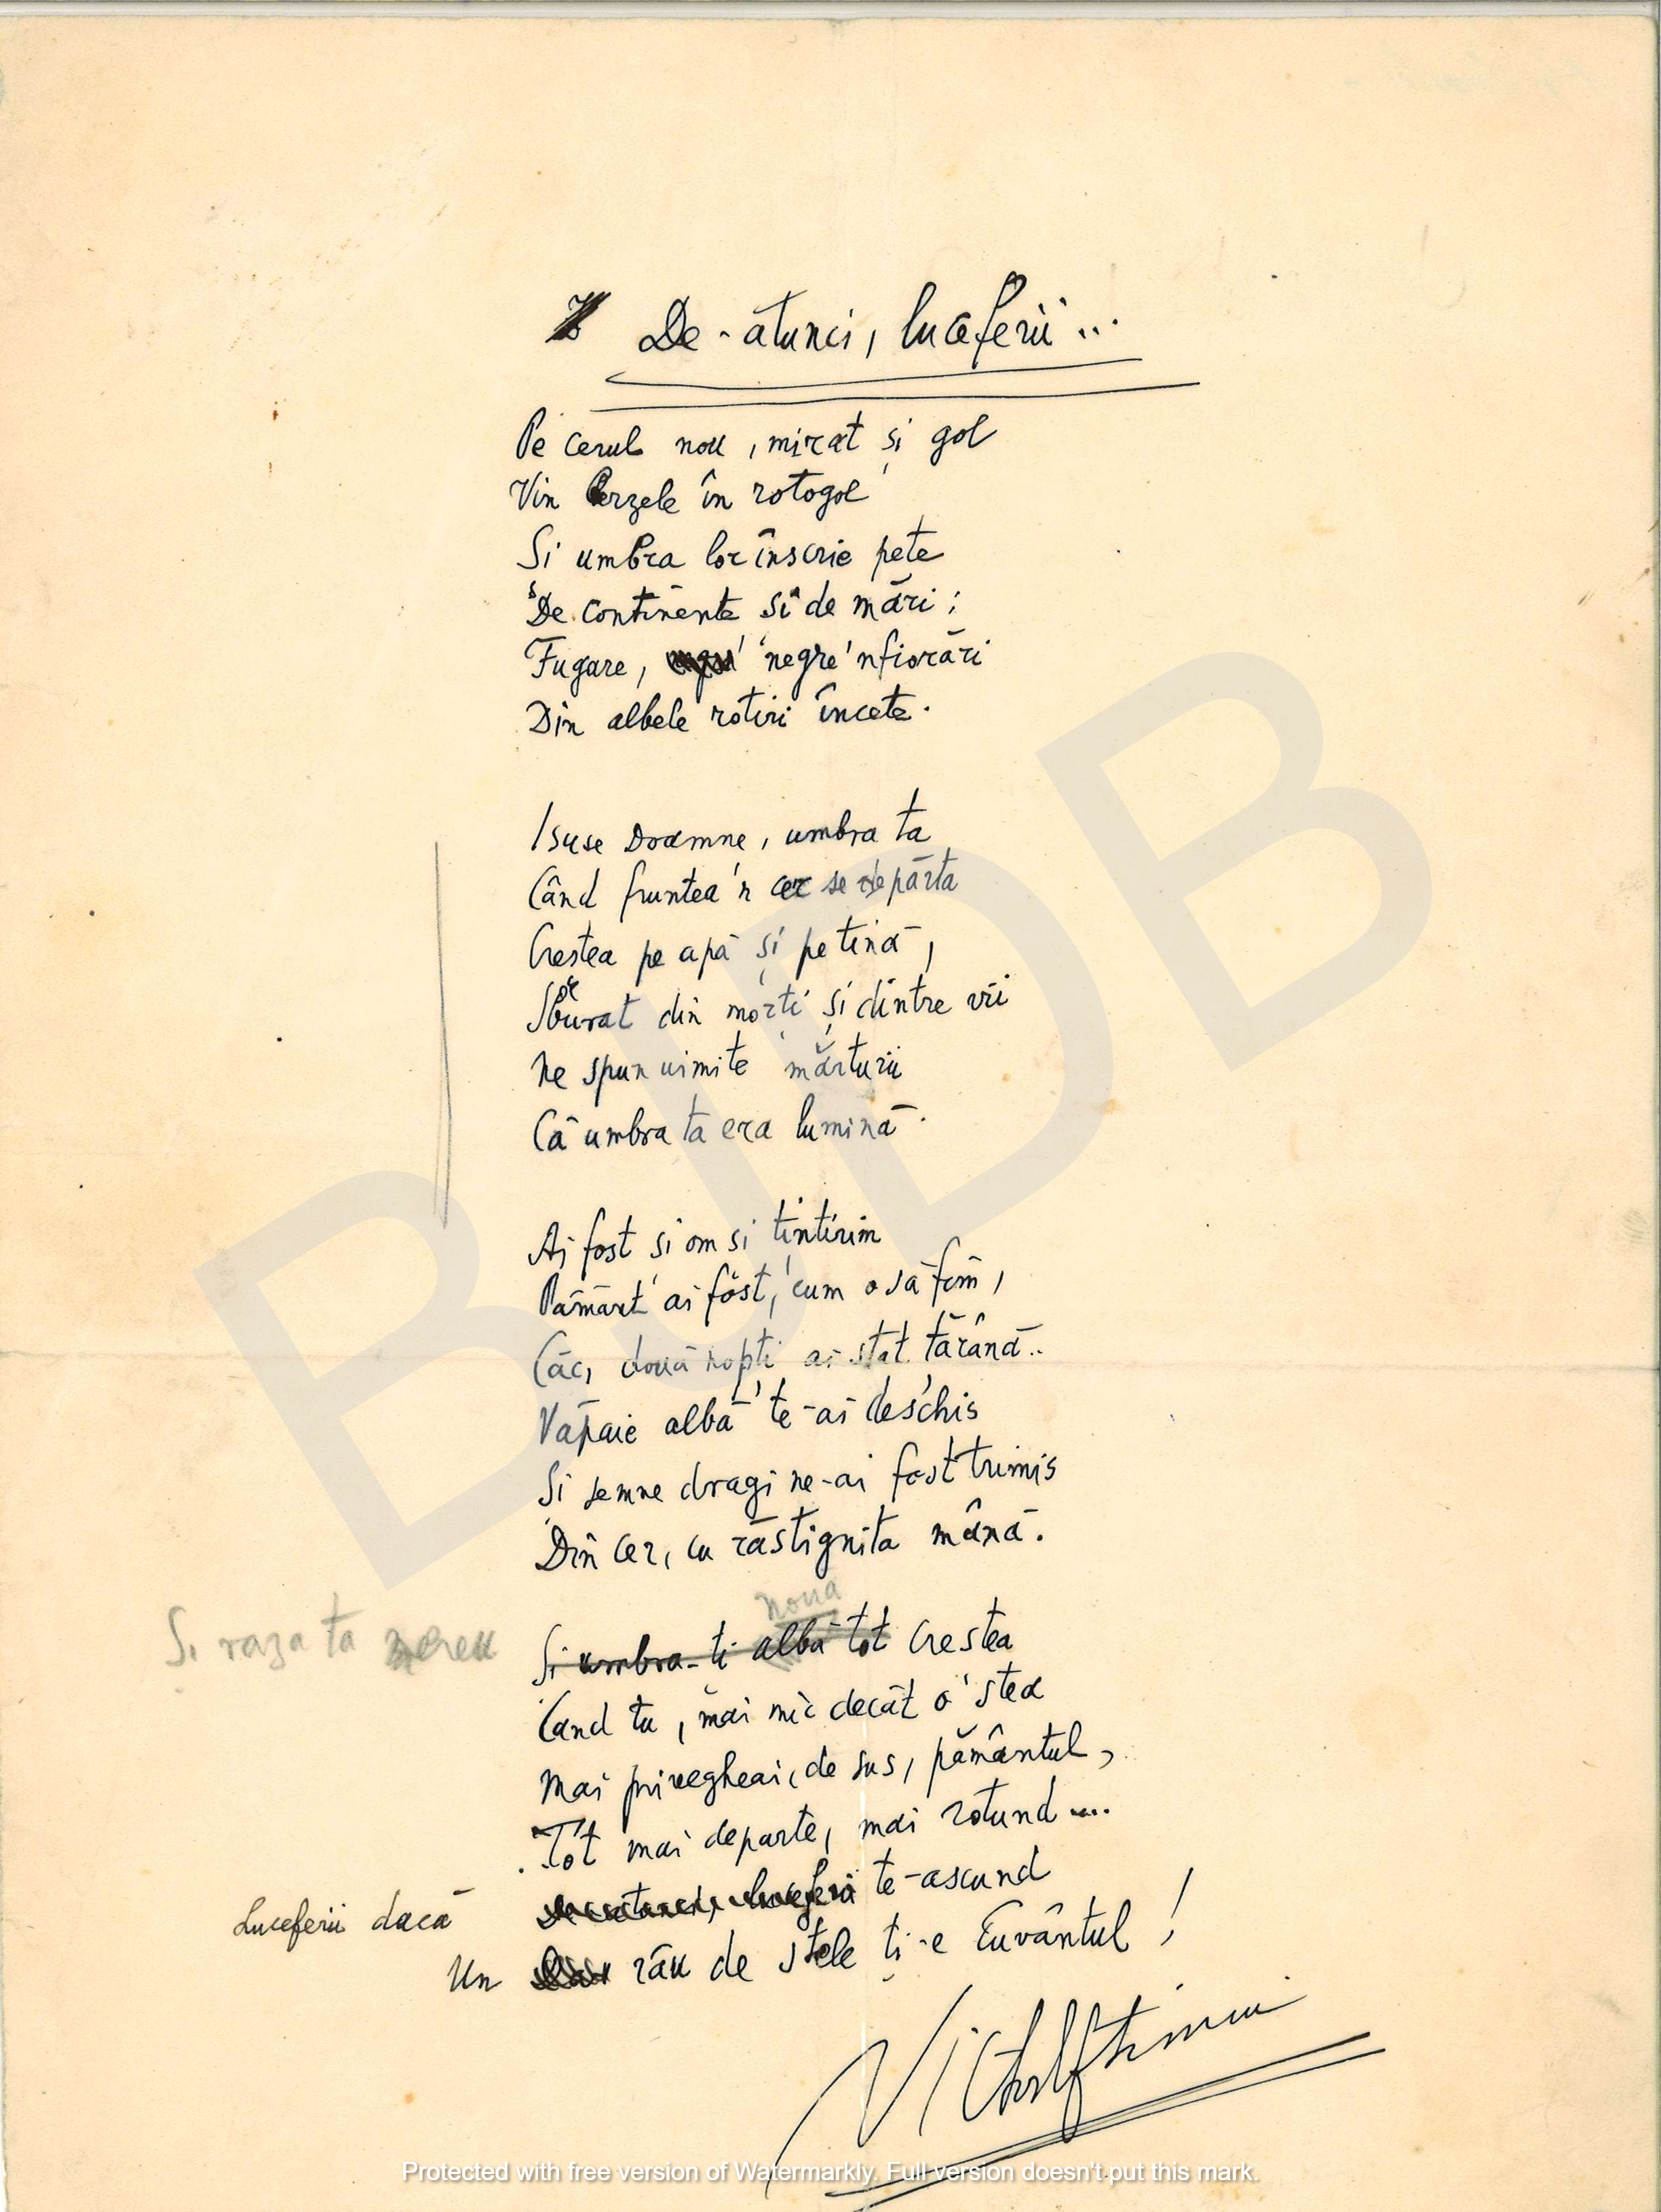 De-atunci, luceferii...
Pe cerul nou, mirat și gol
Vin Berzele în rotogol
Și umbra lor înscrie pete
De continente și de mări;
Fugare, negre 'nfiorări
Din albele rotiri încete.
Isuse Doamne, umbra ta
Când fruntea 'n cer se depărta
Creștea pe apă și pe tină,
Sburat din morți și dintre vii
Ne spun uimite mărturii
Că umbra ta era lumină.
Ai fost și om și țintirim
Pământ ai fost, cum o să fim,
Căci două nopți ai stat țărână..
Văpaie albă te-ai deschis
Și semne dragi ne-ai fost trimis
Din cer, cu răstignita mână.
nouă
Și raza ta mereu Și umbra-ți albă tot creștea
Când tu, mai mic decât o stea
Mai privegheai, de sus, pământul,
Tot mai departe, mai rotund....
Luceferii dacă De-atunci, luceferii te-ascund
Un râu de stele ți-e Cuvântul!
Victor Eftimiu
BJDB
Protected with free version of Watermarkly. Full version doesn't put this mark.